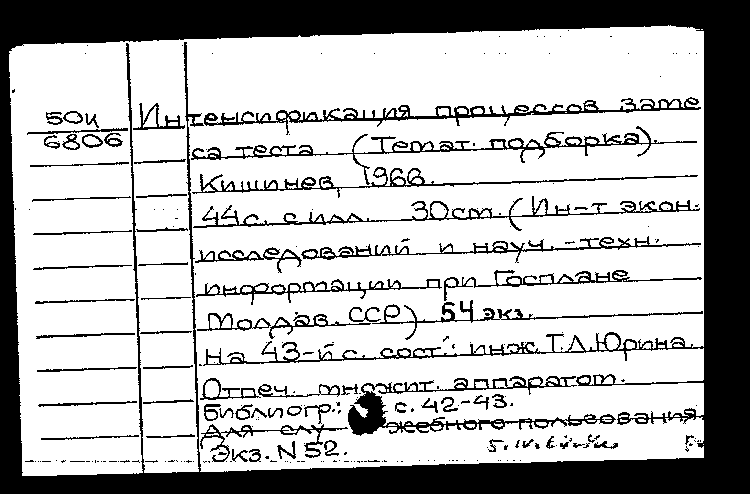 50и
6806
Интенсификация процессов заме
са теста. (Темат. подборка).
Кишинев, 1966.
44с. с илл. 30см. (Ин-т экон.
исследований и науч.-техн.
информации при Госплане
Молдав. ССР) 54 экз.
На 43-й с. сост.: инж. Т.Л.Юрина.
Отпеч. множит. аппаратом.
Библиогр.: с. 42-43.
Для слу жебного пользования.
Экз. N 52.